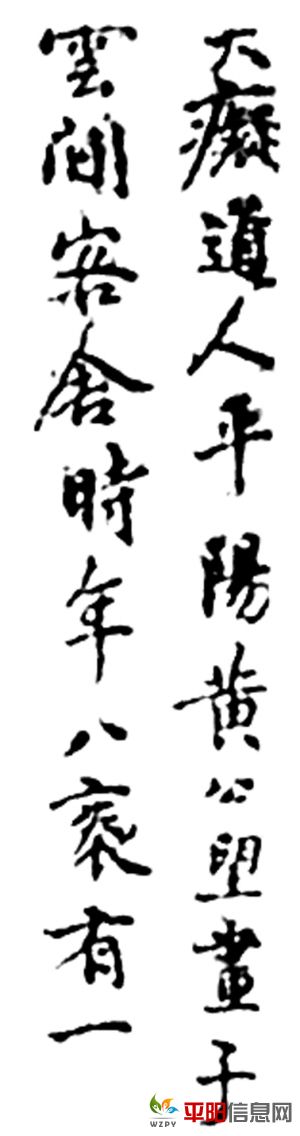 大癡道人平陽黄公望畫于
雲間客舍時年八袠有一
WZPY 平阳信息网